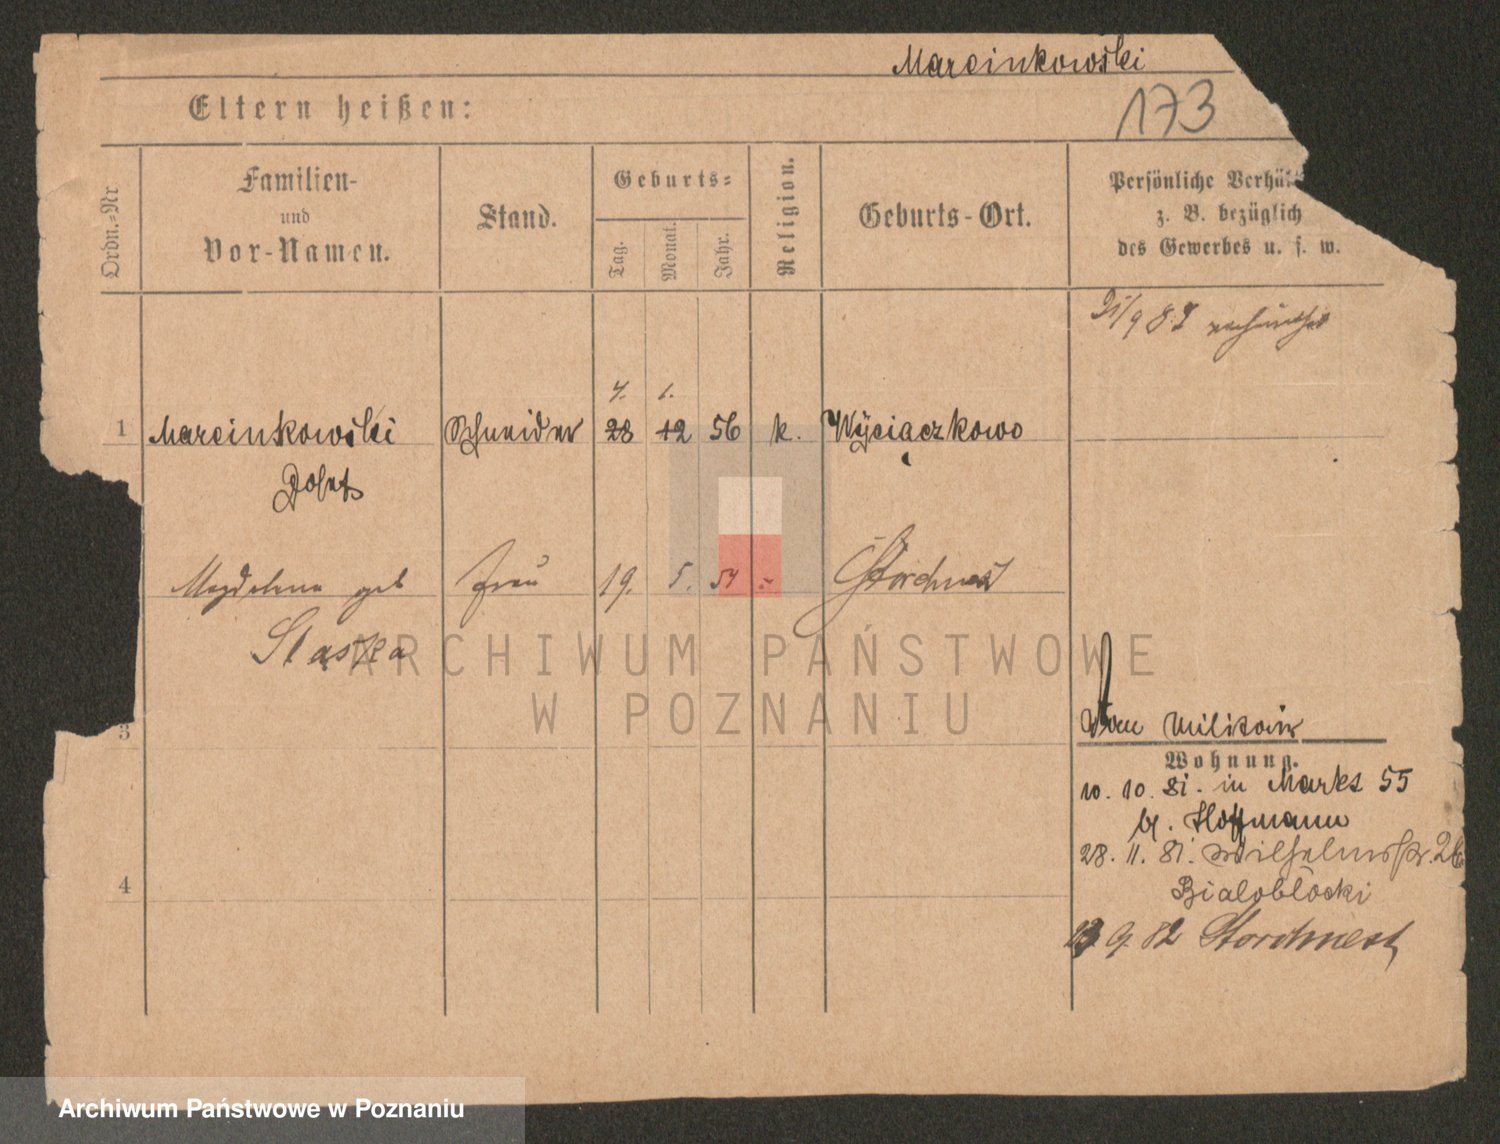 Marcinkowski
173
Eltern heißen:
Ordn.-Nr
Familien-
und
Vor-Namen.
Stand.
Geburts-
Tag.
Monat.
Jahr.
Religion.
Geburts-Ort.
Persönliche Verhä
z. B. bezüglich
des Gewerbes u. s. w.
21/9 82
1.
1 Marcinkowski Schneider 28 12 56 k. Wyciączkowo
Josef
Magdalena geb Frau 19. 5. 54 Storchnest
Staska
ARCHIWUM PAŃSTWOWE
W POZNANIU
3
Vom Militair
Wohnung.
10. 10. 81. in Markt 55
b. Hoffmann
28. 11. 81. Wilhelmstr. 26
Bialobłocki
4
13 9. 82 Storchnest
Archiwum Państwowe w Poznaniu